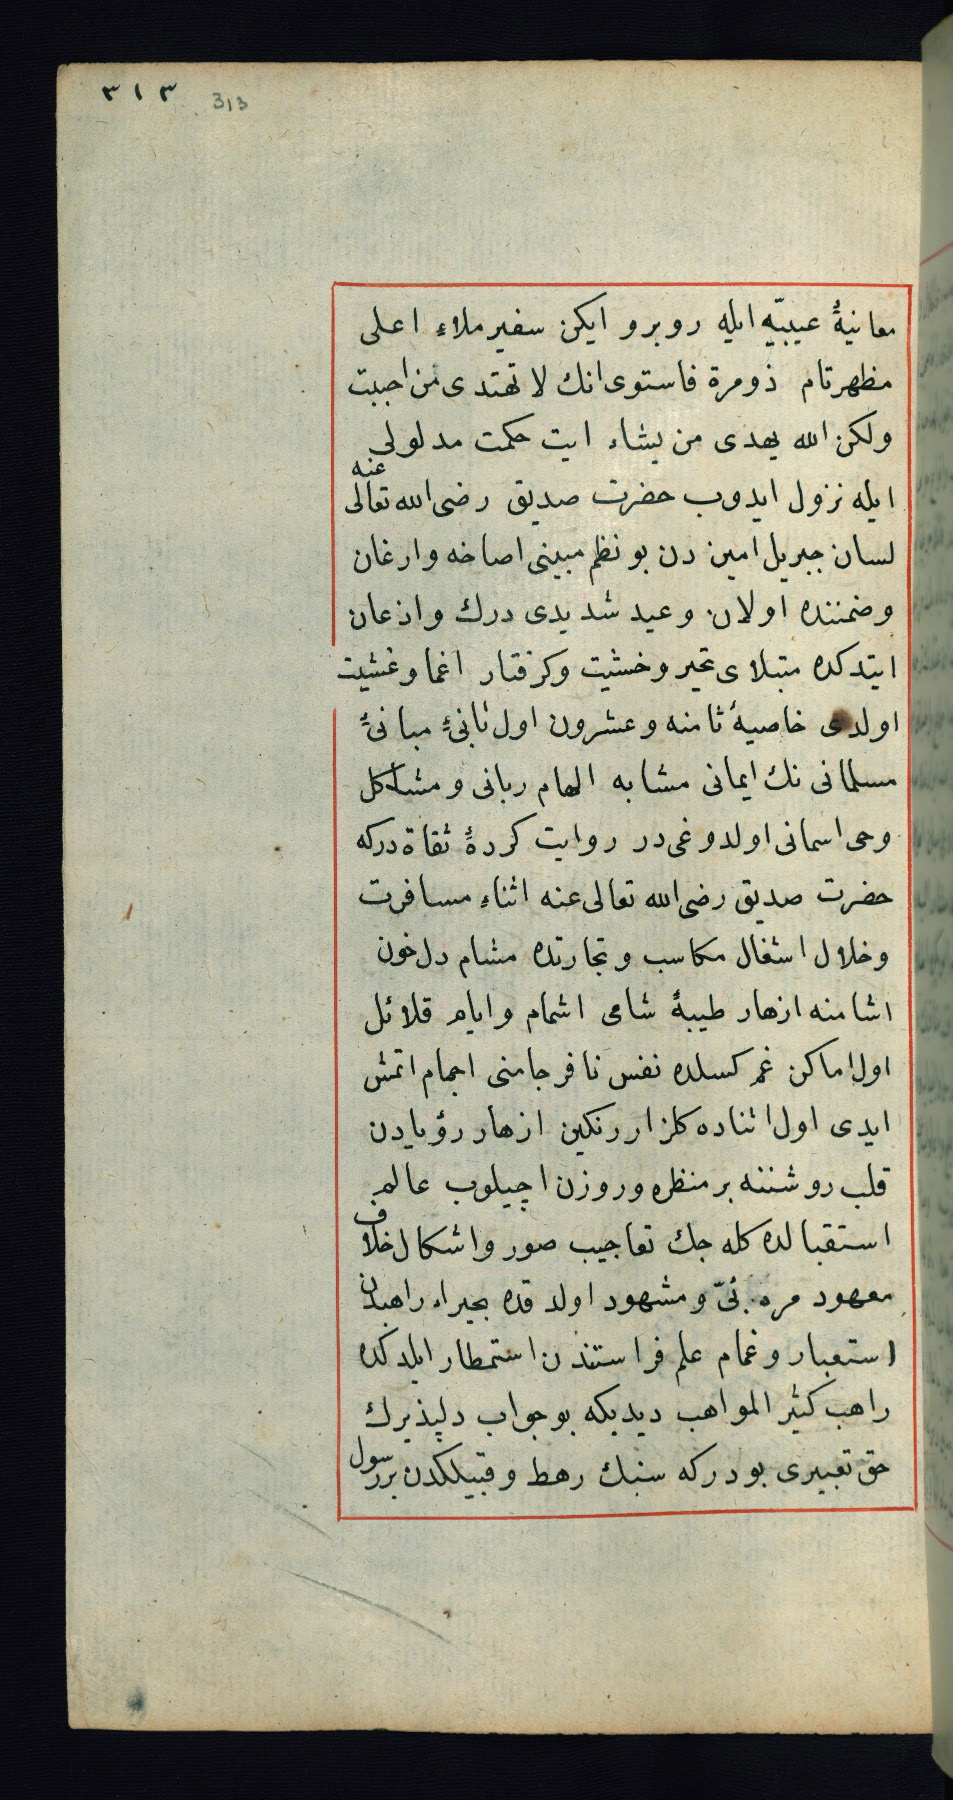 ٣١٣ 313
معانیۀ عیبیّه ایله روبرو ایکن سفیر ملاء اعلی
مظهر تام ذومرة فاستوی انك لا تهتدی من احببت
ولکن الله یهدی من یشاء ایت حکمت مدلولی
ایله نزول ایدوب حضرت صدیق رضی الله تعالی عنه
لسان جبریل امین دن بو نظم مبینی اصاخه وارغان
وضمننده اولان وعید شدیدی درك واذعان
ایتدکده مبتلای تحیر وخشیت وکرفتار اغما وغشیت
اولدی خاصیۀ ثامنه وعشرون اول ثانئ مبانئ
مسلمانی نك ایمانی مشابه الهام ربانی ومشاکل
وحی اسمانی اولدوغی در روایت کردۀ ثقاة درکه
حضرت صدیق رضی الله تعالی عنه اثناء مسافرت
وخلال اشغال مکاسب وتجارتده مشام دل خون
اشامنه ازهار طیبۀ شامی اشمام وایام قلائل
اول اماکن غم کسلده نفس نافرجامنی اجمام اتمش
ایدی اول اثناده کلزار رنکین ازهار رؤیادن
قلب روشننه بر منظره وروزن اچیلوب عالم
استقبالده کله جك تعاجیب صور واشکال خلاف
معهود مرئی ومشهود اولدقده بحیراء راهبدن
استعبار وغمام علم فراستندن استمطار ایلدکده
راهب کثیر المواهب دیدیکه بو جواب دلپذیرك
حق تعبیری بودرکه سنك رهط وقبیلکدن بر رسول